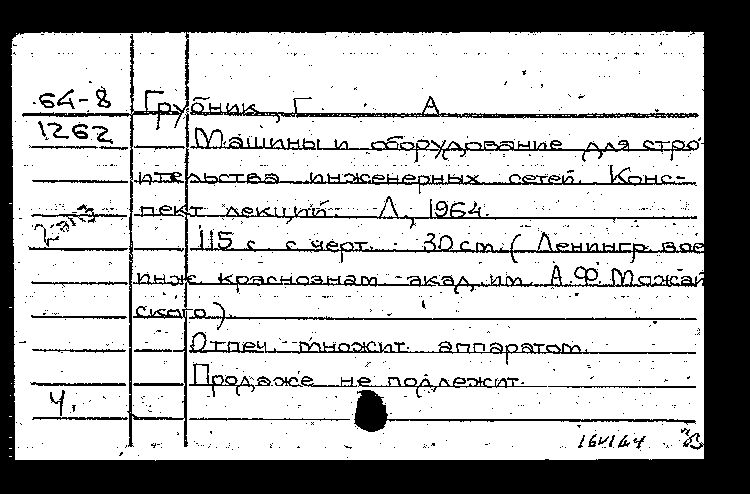 64-8 Грубник, Г. А
1262 Машины и оборудование для стро-
ительства инженерных сетей. Конс-
пект лекций. Л., 1964.
115 с. с черт. 30 см. (Ленингр. вое
инж. краснознам. акад. им. А.Ф. Можай
ского).
Отпеч. множит. аппаратом.
Продаже не подлежит.
Ч.
164164